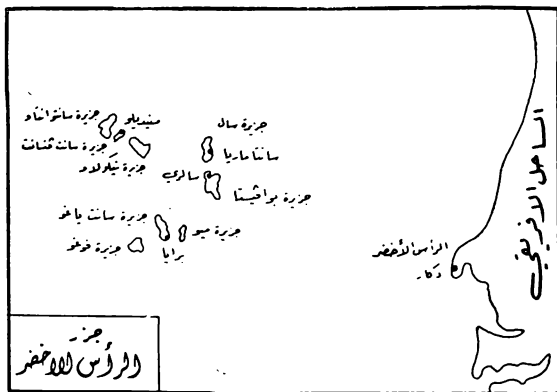 جزيرة سانتوانتاو
منيديلو
جزيرة سانت فنسانت
جزيرة نيكولاو
جزيرة سال
سانتاماريا
سالري
جزيرة بوافيستا
جزيرة سانت ياغو
جزيرة ميو
جزيرة فوغو
برايا
الرأس الأخضر
دكار
الساحل الافريقي
جزر
الرأس الاخضر